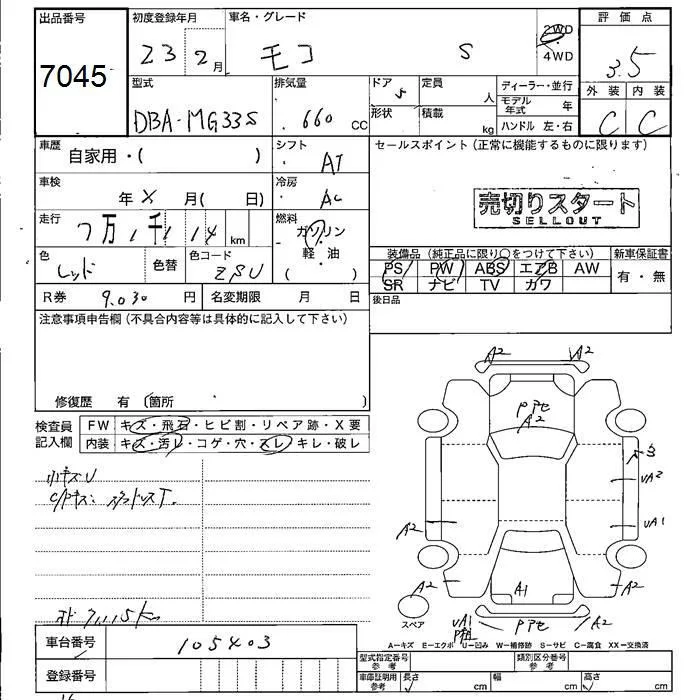 出品番号
7045
初度登録年月
23 2月
車名・グレード
モコ S
2WD
4WD
評価点
3.5
外装 内装
C C
型式
DBA-MG33S
排気量
660 CC
ドア
5
形状
定員
人
積載
kg
ディーラー・並行
モデル年式 年
ハンドル 左・右
車歴
自家用・( )
シフト
AT
セールスポイント(正常に機能するものに限ります)
売切りスタート
SELLOUT
車検
年 X 月( 日)
冷房
AC
走行
7万 1千 1 14 km
燃料
ガソリン
軽・油
( )
色
レッド
色替
色コード
ZSU
装備品(純正品に限り○をつけて下さい)
PS PW ABS エアB AW
SR ナビ TV カワ
新車保証書
有・無
後日品
R券 9,030 円
名変期限 月 日
注意事項申告欄(不具合内容等は具体的に記入して下さい)
修復歴 有(箇所 )
検査員記入欄
FW キズ・飛石・ヒビ割・リペア跡・X要
内装 キズ・汚レ・コゲ・穴・スレ・キレ・破レ
小キズU
A2 A2
PPセ
A2
3
UA2
UA1
A2
A2
A2
A1
スペア
UA1
PPセ
A2
A-キズ E-エクボ U-凹み W-補修跡 S-サビ C-腐食 XX-交換済
車台番号
105403
登録番号
型式指定番号 参考
類別区分番号 参考
車庫証明用 参考
長さ cm
幅 cm
高さ cm